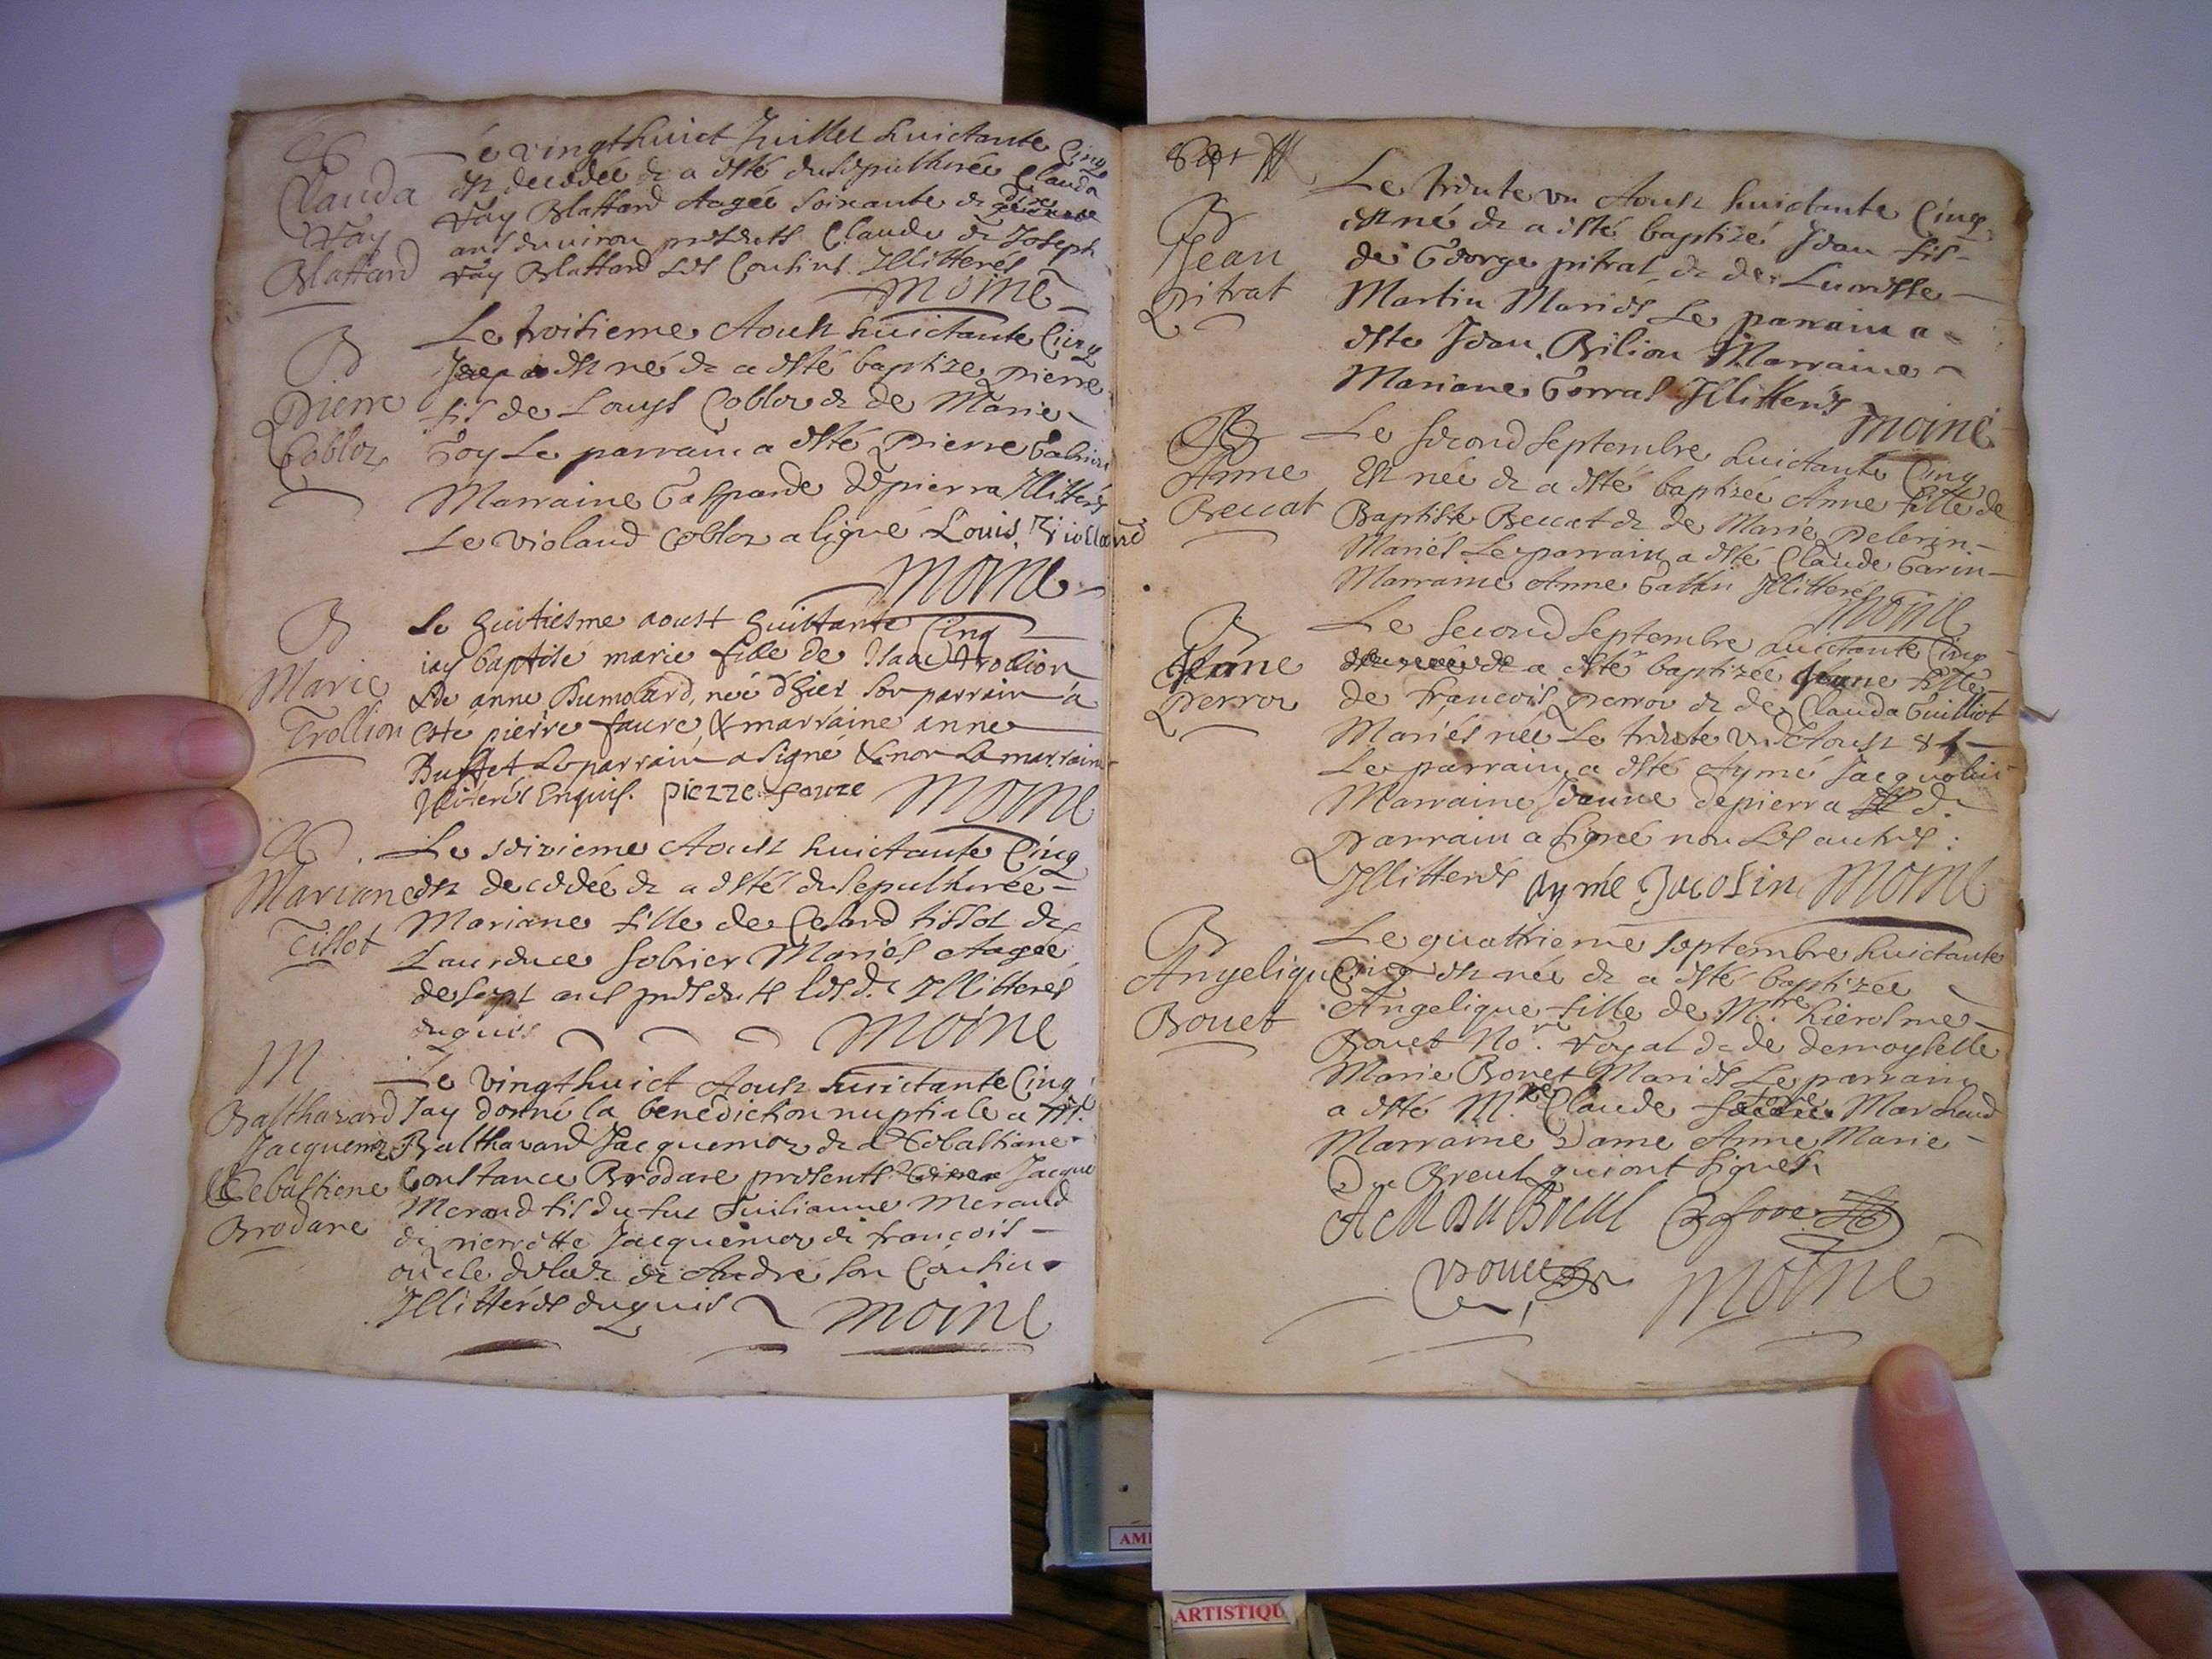 Clauda
Vay
Blattard
Le vingthuict Juillet huictante Cinq
est decedée & a esté ensepulthurée Clauda
Vay Blattard Aagée soixante & dix
ans environ presents Claude & Joseph
Vay Blattard ses Cousins Illitterés
Moine
B
Pierre
Cobloz
Le troisieme Aoust huictante Cinq
est né & a esté baptize pierre
fis de Louys Cobloz & de Marie
Goy Le parrain a esté Pierre
Marraine Gasparde Depierra Illiterés
Le violand Cobloz a signé Louis Violland
Moine
B
Marie
Trollion
Le huitiesme aoust huittante Cinq
iay baptisé marie fille de Isaac Trollion
& de anne Dumolard, née d'hier son parrain a
esté pierre faure, & marraine anne
Buffet Le parrain a signé & non La marraine
Illiterés Enquis. pierre faure Moine
Mariane
Tissot
Le seizieme Aoust huictante Cinq
est decedée & a esté ensepulthurée
Mariane fille de Cesard tissot &
Laurence sobrier Mariés Aagée
de sept ans presents lesd. Illitterés
enquis Moine
M
Balthazard
Jacquemoz
Sebastiene
Brodare
Le vingthuict Aoust huictante Cinq
Jay donné la benediction nuptiale a M.
Balthazard Jacquemoz & a Sebastiane
Constance Brodare presents Jacque
Meraud fis du fut Guilianme Meraud
& pierrette Jacquemoz & françois
oncle & André son Cousin
Illitterés enquis Moine
Jean
Pitrat
Le trente un Aoust huictante Cinq
est né & a esté baptizé Jean fis
de George pitrat & de Lucresse
Martin Mariés Le parrain a
este Jean Bilion Marraine
Mariane Gorras Illitterés Moine
B
Anne
Beccat
Le second Septembre huictante Cinq
Est née & a esté baptizée Anne fille de
Baptiste Beccat & de Marie Pelerin
Mariés Le parrain a esté Claude Garin
Marraine Anne Illitterés
Moine
B
Jeane
Perroz
Le second Septembre huictante Cinq
a esté baptizée Jeane fille
de francois perroz & de Clauda Guilliot
Mariés née Le trente un Aoust 85
Le parrain a esté Aymé Jacquolin
Marraine Jeanne depierra &
Parrain a signé non les autres :
Illitterés aymé Jacolin Moine
B
Angelique
Bouet
Le quattrieme septembre huictante
Cinq est née & a esté baptizée
Angelique fille de M.tre hierosme
Bouet No.re royal & de demoyselle
Marie Bouet Mariés Le parrain
a esté M.re Claude favre Marchand
Marraine Dame Anne Marie
Du Breul qui ont signés
A M Du Breul C favre
Bouet Moine
AMI
ARTISTIQU